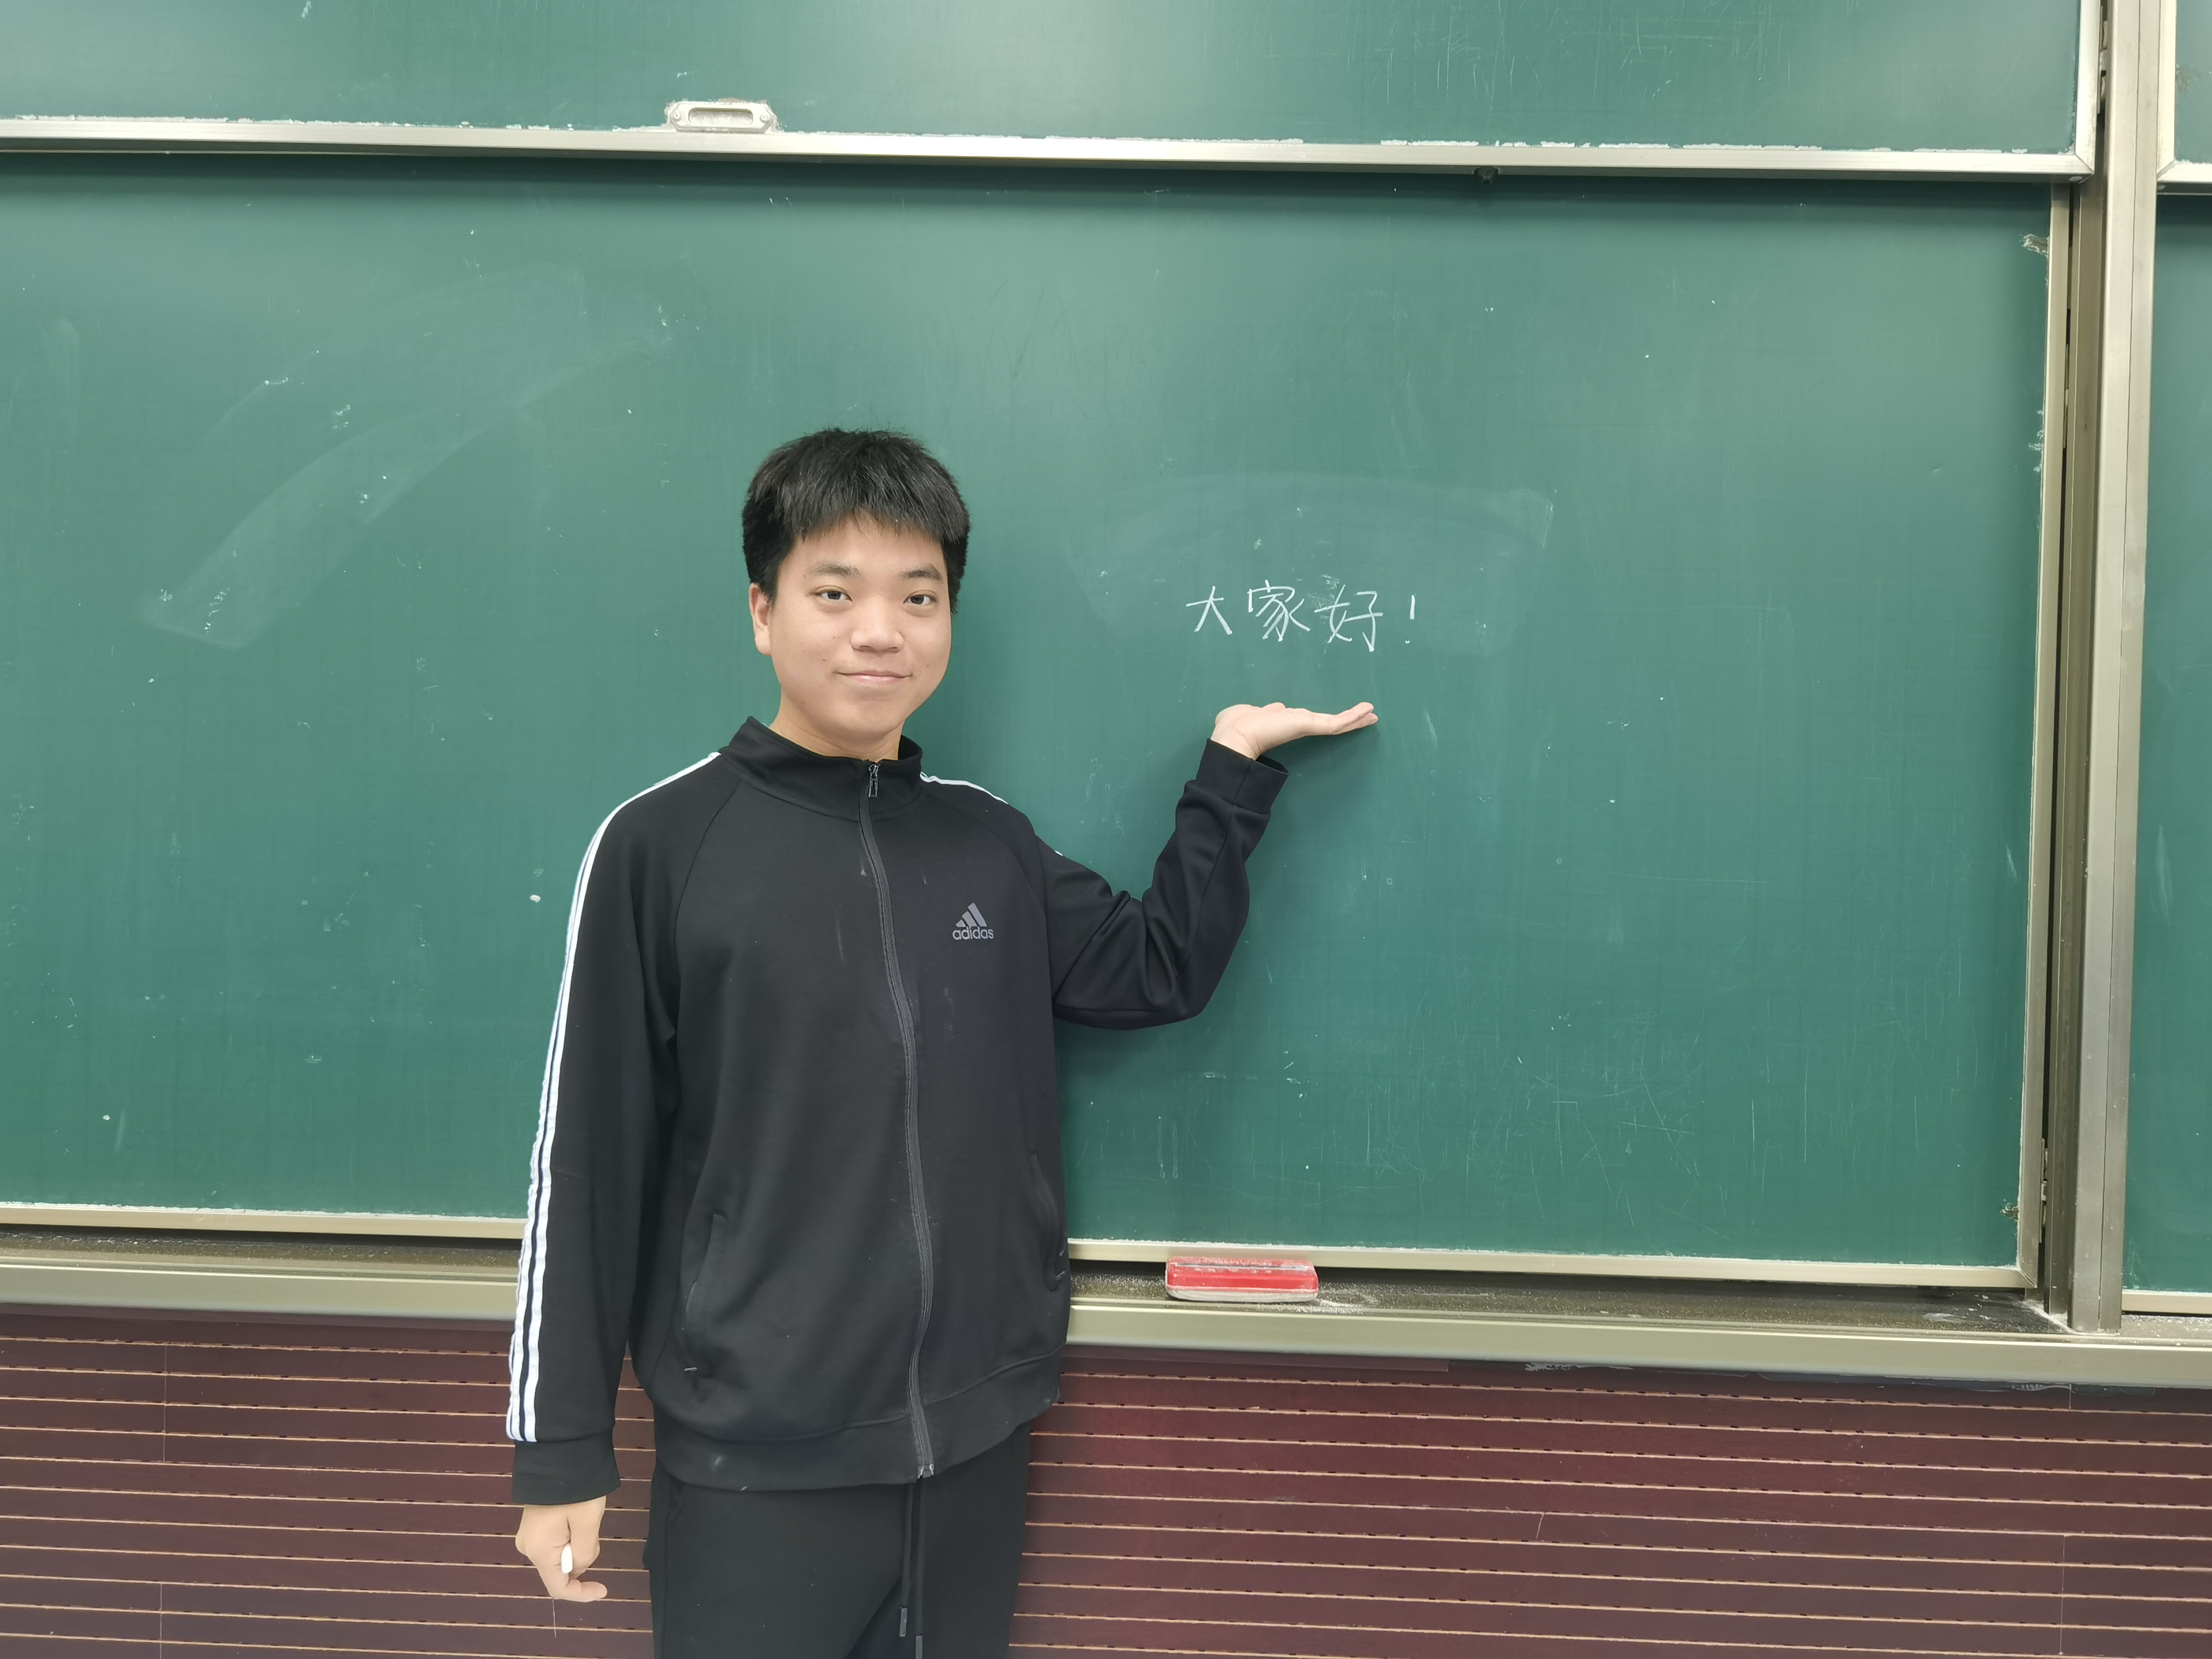 大家好！
adidas